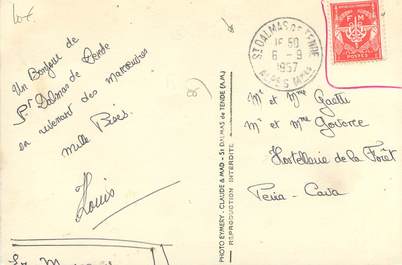 Un Bonjour de
St Dalmas de Tende
en revenant des Manoeuvres
mille Bises
Louis
PHOTO EYMERY - CLAUDE & MAD - ST DALMAS de TENDE (A.M.)
REPRODUCTION INTERDITE
ST DALMAS DE TENDE
16 50
6 - 9
1957
ALPES MMES
F M
Mr et Mme Gatti
Mr et Mme
Hostellerie de la Forêt
Peira - Cava